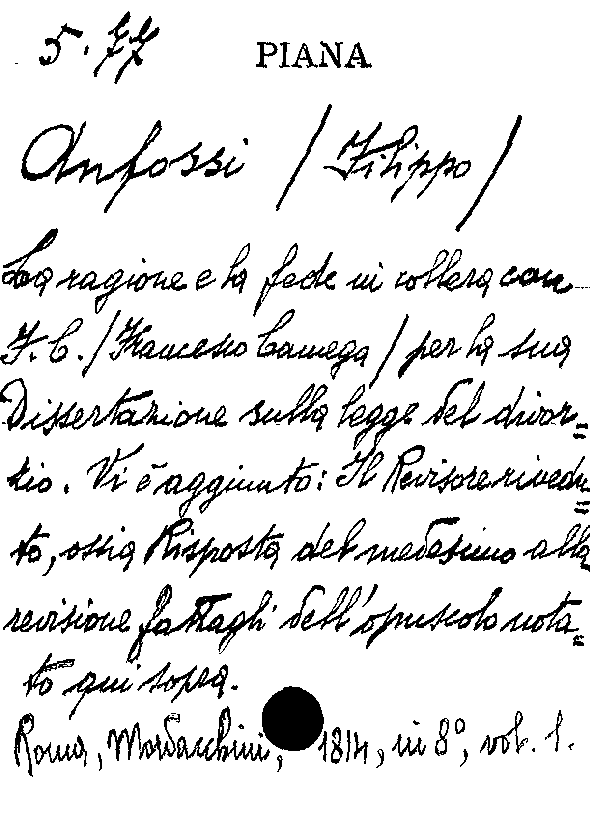 5.77 PIANA
Anfossi /Filippo/
La ragione e la fede in collera con
F. C. /Francesco Carrega/ per la sua
Dissertazione sulla legge del divor=
zio. Vi è aggiunto: Il Revisore rivedu=
to, ossia Risposta del medesimo alla
revisione fattagli dell'opuscolo nota=
to qui sopra.
Roma, Mordacchini, 1814, in 8°, vol. 1.